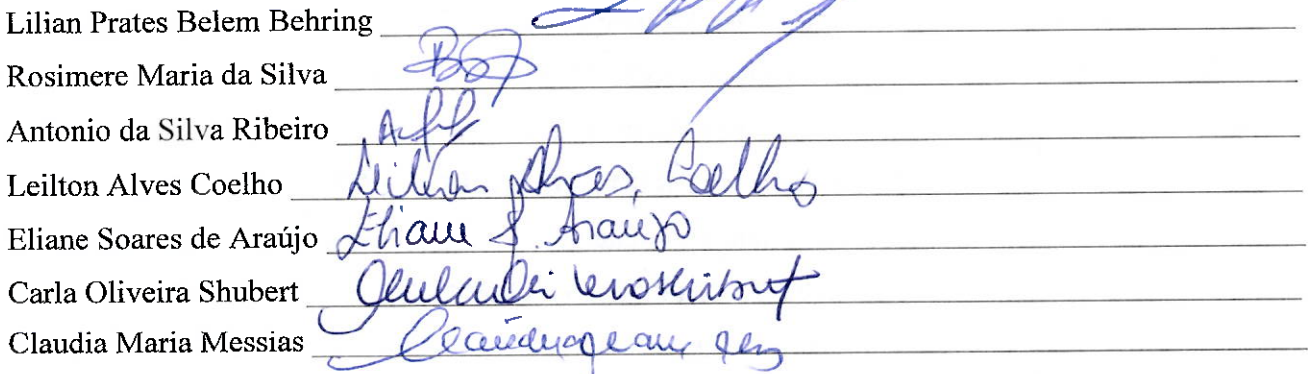 Lilian Prates Belem Behring
Rosimere Maria da Silva
Antonio da Silva Ribeiro
Leilton Alves Coelho Leilton Alves Coelho
Eliane Soares de Araújo Eliane S. Araújo
Carla Oliveira Shubert
Claudia Maria Messias